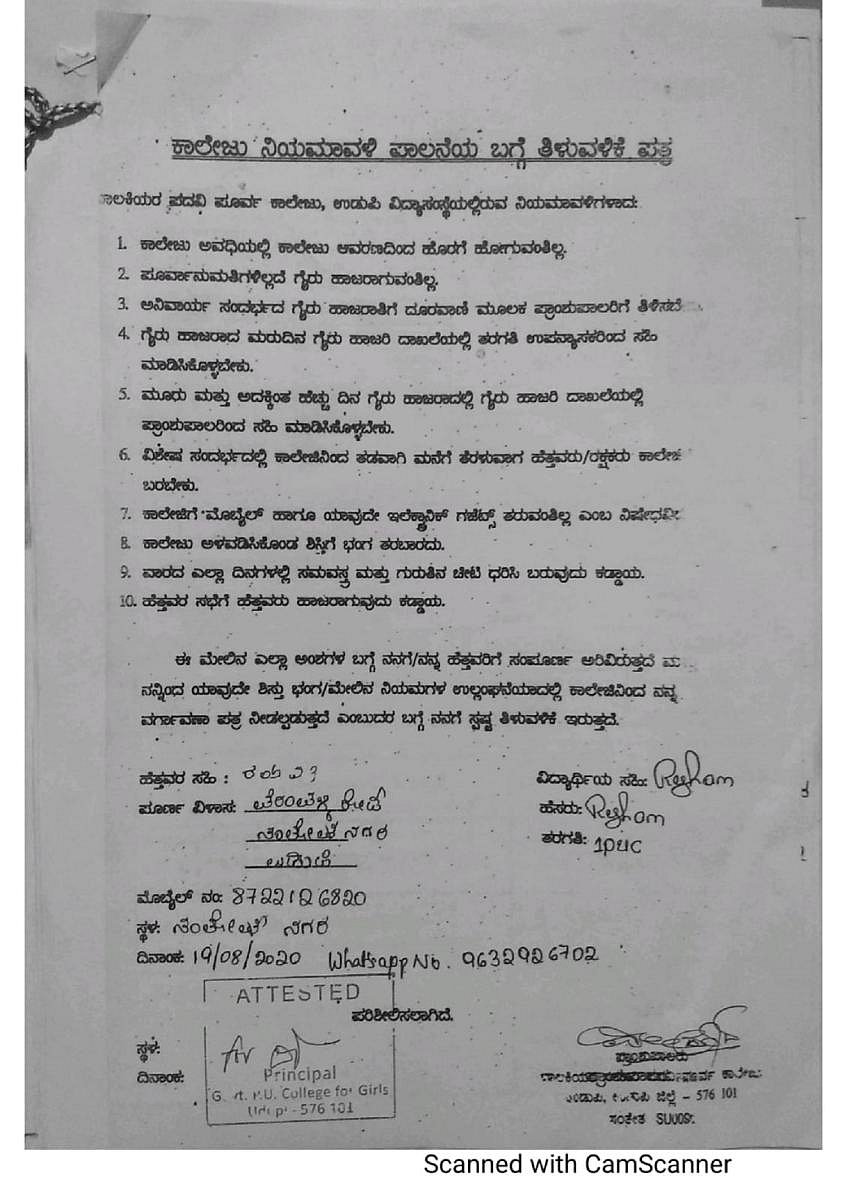 ಕಾಲೇಜು ನಿಯಮಾವಳಿ ಪಾಲನೆಯ ಬಗ್ಗೆ ತಿಳುವಳಿಕೆ ಪತ್ರ
ಪದವಿ ಪೂರ್ವ ಕಾಲೇಜು, ಉಡುಪಿ ವಿದ್ಯಾಸಂಸ್ಥೆಯಲ್ಲಿರುವ ನಿಯಮಾವಳಿಗಳಾದ:
1. ಕಾಲೇಜು ಅವಧಿಯಲ್ಲಿ ಕಾಲೇಜು ಆವರಣದಿಂದ ಹೊರಗೆ ಹೋಗುವಂತಿಲ್ಲ.
2. ಪೂರ್ವಾನುಮತಿಗಳಿಲ್ಲದೆ ಗೈರು ಹಾಜರಾಗುವಂತಿಲ್ಲ.
3. ಅನಿವಾರ್ಯ ಸಂದರ್ಭದ ಗೈರು ಹಾಜರಾತಿಗೆ ದೂರವಾಣಿ ಮೂಲಕ ಪ್ರಾಂಶುಪಾಲರಿಗೆ
4. ಗೈರು ಹಾಜರಾದ ಮರುದಿನ ಗೈರು ಹಾಜರಿ ದಾಖಲೆಯಲ್ಲಿ ತರಗತಿ ಉಪನ್ಯಾಸಕರಿಂದ ಸಹಿ
ಮಾಡಿಸಿಕೊಳ್ಳಬೇಕು.
5. ಮೂರು ಮತ್ತು ಅದಕ್ಕಿಂತ ಹೆಚ್ಚು ದಿನ ಗೈರು ಹಾಜರಾದಲ್ಲಿ ಗೈರು ಹಾಜರಿ ದಾಖಲೆಯಲ್ಲಿ
ಪ್ರಾಂಶುಪಾಲರಿಂದ ಸಹಿ ಮಾಡಿಸಿಕೊಳ್ಳಬೇಕು.
6. ವಿಶೇಷ ಸಂದರ್ಭದಲ್ಲಿ ಕಾಲೇಜಿನಿಂದ ತಡವಾಗಿ ಮನೆಗೆ ತೆರಳುವಾಗ ಹೆತ್ತವರು/ರಕ್ಷಕರು
ಬರಬೇಕು.
7. ಕಾಲೇಜಿಗೆ ಮೊಬೈಲ್ ಹಾಗೂ ಯಾವುದೇ ಇಲೆಕ್ಟ್ರಾನಿಕ್ ಗಜೆಟ್ಸ್ ತರುವಂತಿಲ್ಲ ಎಂಬ
8. ಕಾಲೇಜು ಅಳವಡಿಸಿಕೊಂಡ ಶಿಸ್ತಿಗೆ ಭಂಗ ತರಬಾರದು.
9. ವಾರದ ಎಲ್ಲಾ ದಿನಗಳಲ್ಲಿ ಸಮವಸ್ತ್ರ ಮತ್ತು ಗುರುತಿನ ಚೀಟಿ ಧರಿಸಿ ಬರುವುದು ಕಡ್ಡಾಯ.
10. ಹೆತ್ತವರ ಸಭೆಗೆ ಹೆತ್ತವರು ಹಾಜರಾಗುವುದು ಕಡ್ಡಾಯ.
ಈ ಮೇಲಿನ ಎಲ್ಲಾ ಅಂಶಗಳ ಬಗ್ಗೆ ನನಗೆ/ನನ್ನ ಹೆತ್ತವರಿಗೆ ಸಂಪೂರ್ಣ ಅರಿವಿರುತ್ತದೆ
ನನ್ನಿಂದ ಯಾವುದೇ ಶಿಸ್ತು ಭಂಗ/ಮೇಲಿನ ನಿಯಮಗಳ ಉಲ್ಲಂಘನೆಯಾದಲ್ಲಿ ಕಾಲೇಜಿನಿಂದ ನನ್ನ
ವರ್ಗಾವಣಾ ಪತ್ರ ನೀಡಲ್ಪಡುತ್ತದೆ ಎಂಬುದರ ಬಗ್ಗೆ ನನಗೆ ಸ್ಪಷ್ಟ ತಿಳುವಳಿಕೆ ಇರುತ್ತದೆ.
ಹೆತ್ತವರ ಸಹಿ :
ವಿದ್ಯಾರ್ಥಿಯ ಸಹಿ: Resham
ಪೂರ್ಣ ವಿಳಾಸ:
ಹೆಸರು: Resham
ನಗರ
ತರಗತಿ: 1PUC
ಉಡುಪಿ
ಮೊಬೈಲ್ ನಂ: 8722126820
ಸ್ಥಳ: ಸಂತೋಷ ನಗರ
ದಿನಾಂಕ: 19/08/2020 Whatsapp No. 9632926702
ATTESTED
ಪರಿಶೀಲಿಸಲಾಗಿದೆ.
ಸ್ಥಳ:
ಪ್ರಾಂಶುಪಾಲರು
ದಿನಾಂಕ:
Principal
ಕಾಲೇಜು
Govt. P.U. College for Girls
ಉಡುಪಿ, ಉಡುಪಿ ಜಿಲ್ಲೆ - 576 101
Udupi - 576 101
ಸಂಕೇತ
Scanned with CamScanner